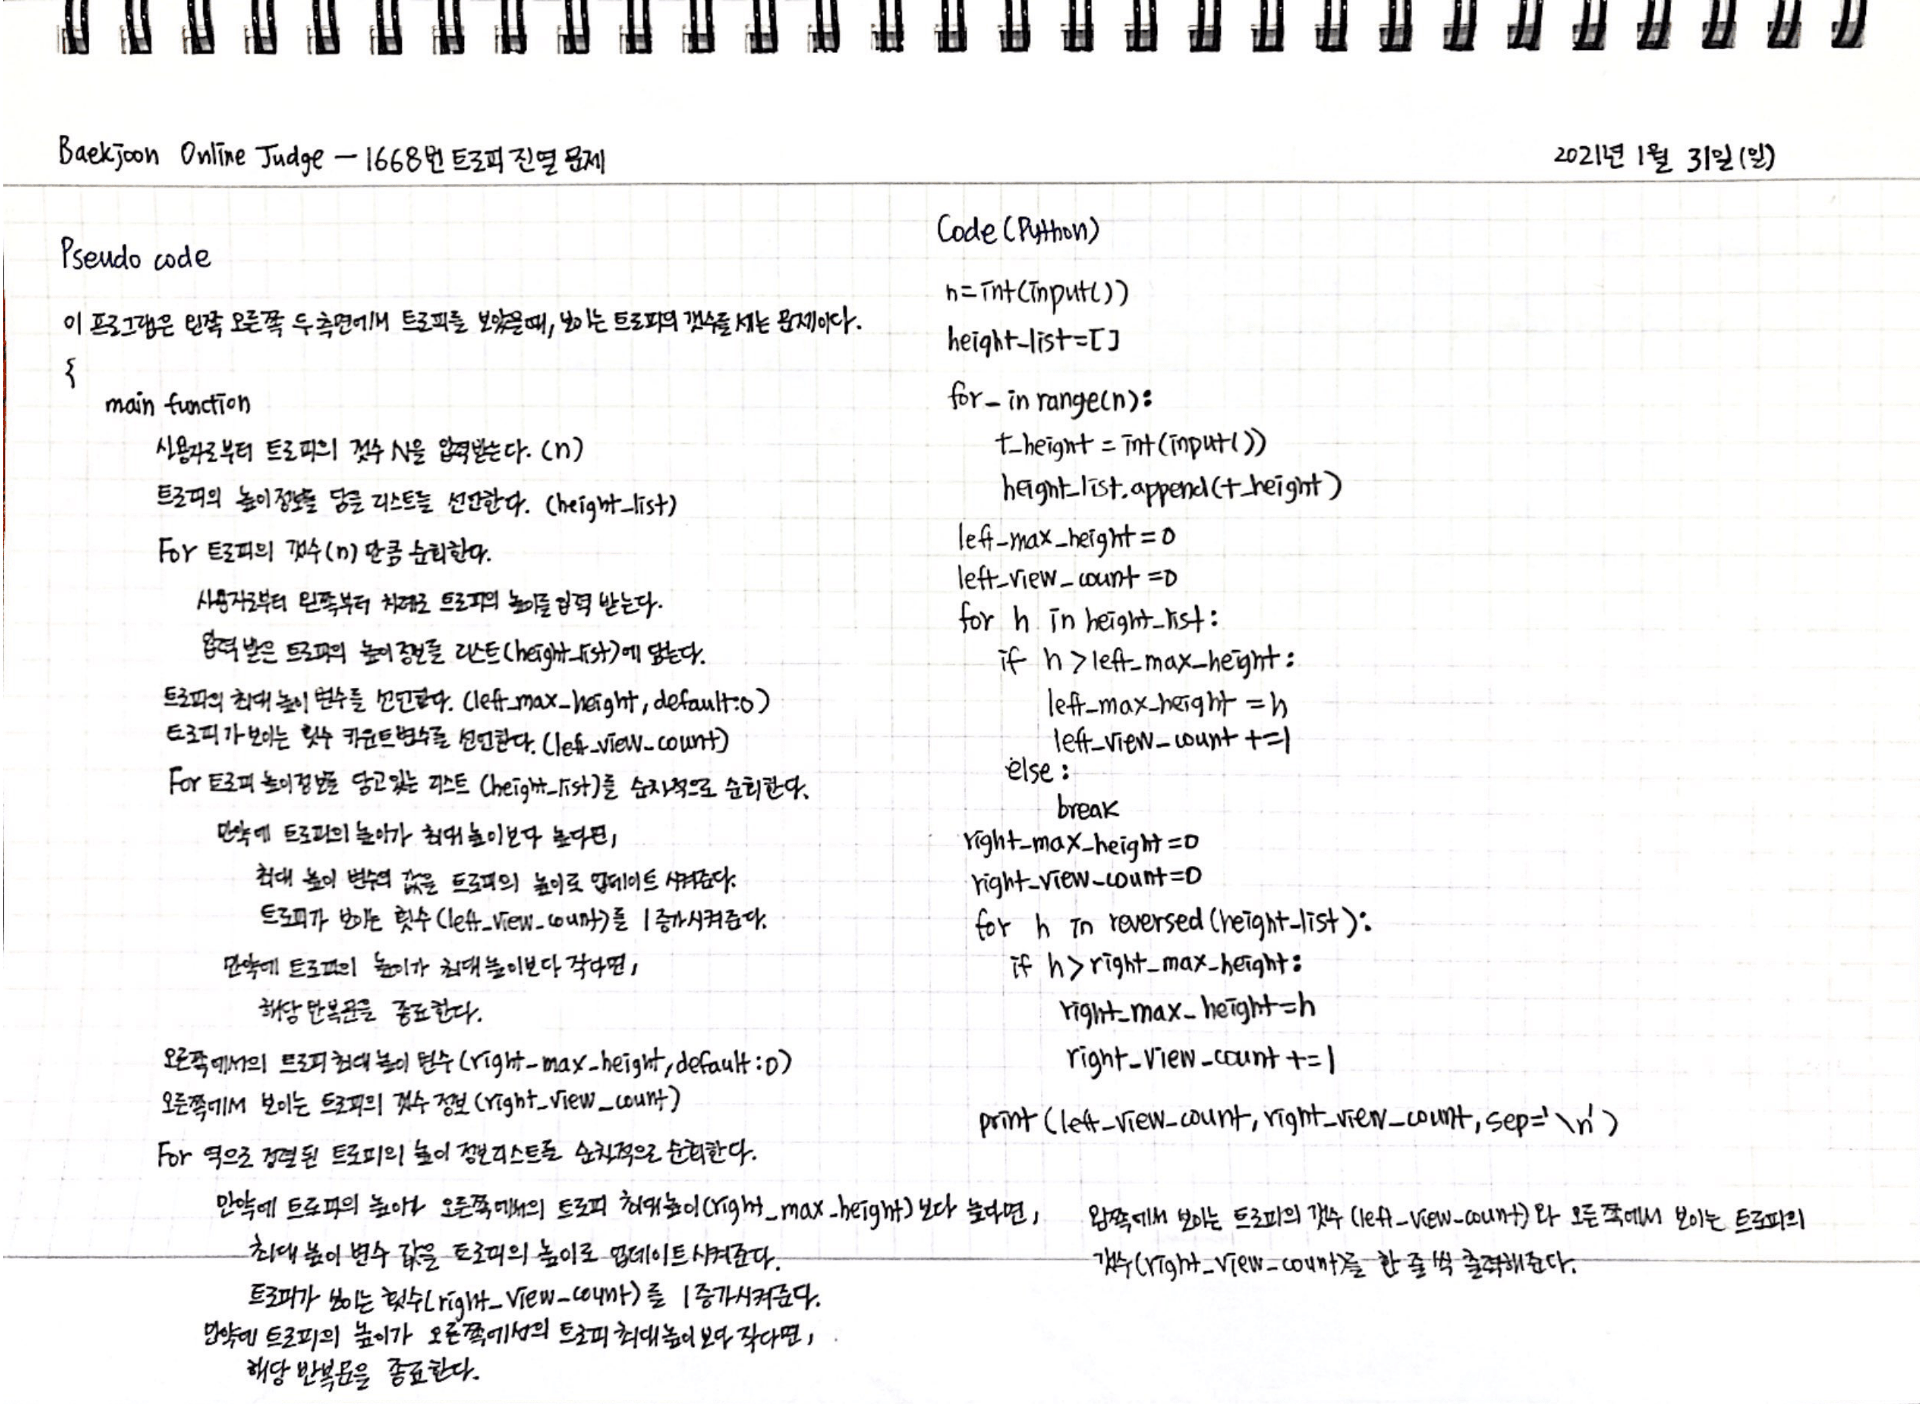 Baekjoon Online Judge - 1668번 트로피 진열 문제
2021년 1월 31일(일)
Pseudo code
이 프로그램은 왼쪽 오른쪽 두 측면에서 트로피를 보았을때, 보이는 트로피의 갯수를 세는 문제이다.
{
main function
사용자로부터 트로피의 갯수 N을 입력받는다. (n)
트로피의 높이정보를 담을 리스트를 선언한다. (height_list)
For 트로피의 갯수(n) 만큼 순회한다.
사용자로부터 왼쪽부터 차례로 트로피의 높이를 입력 받는다.
입력 받은 트로피의 높이정보를 리스트(height_list)에 담는다.
트로피의 최대 높이 변수를 선언한다. (left_max_height, default:0)
트로피가 보이는 횟수 카운트변수를 선언한다. (left_view_count)
For 트로피 높이정보를 담고있는 리스트 (height_list)를 순차적으로 순회한다.
만약에 트로피의 높이가 최대 높이보다 높다면,
최대 높이 변수의 값을 트로피의 높이로 업데이트 시켜준다.
트로피가 보이는 횟수(left_view_count)를 1 증가시켜준다.
만약에 트로피의 높이가 최대 높이보다 작다면,
해당 반복문을 종료한다.
오른쪽에서의 트로피 최대 높이 변수(right_max_height, default:0)
오른쪽에서 보이는 트로피의 갯수 정보(right_view_count)
For 역으로 정렬된 트로피의 높이 정보리스트를 순차적으로 순회한다.
만약에 트로피의 높이가 오른쪽에서의 트로피 최대높이(right_max_height)보다 높다면,
최대 높이 변수 값을 트로피의 높이로 업데이트시켜준다.
트로피가 보이는 횟수(right_view_count)를 1 증가시켜준다.
만약에 트로피의 높이가 오른쪽에서의 트로피 최대높이 보다 작다면,
해당 반복문을 종료한다.
Code (Python)
n=int(input())
height_list=[]
for _ in range(n):
t_height = int(input())
height_list.append(t_height)
left_max_height=0
left_view_count =0
for h in height_list:
if h>left_max_height:
left_max_height =h
left_view_count +=1
else:
break
right_max_height=0
right_view_count=0
for h in reversed(height_list):
if h>right_max_height:
right_max_height=h
right_view_count +=1
print (left_view_count, right_view_count, sep='\n')
왼쪽에서 보이는 트로피의 갯수 (left_view_count)와 오른쪽에서 보이는 트로피의
갯수(right_view_count)를 한 줄 씩 출력해준다.